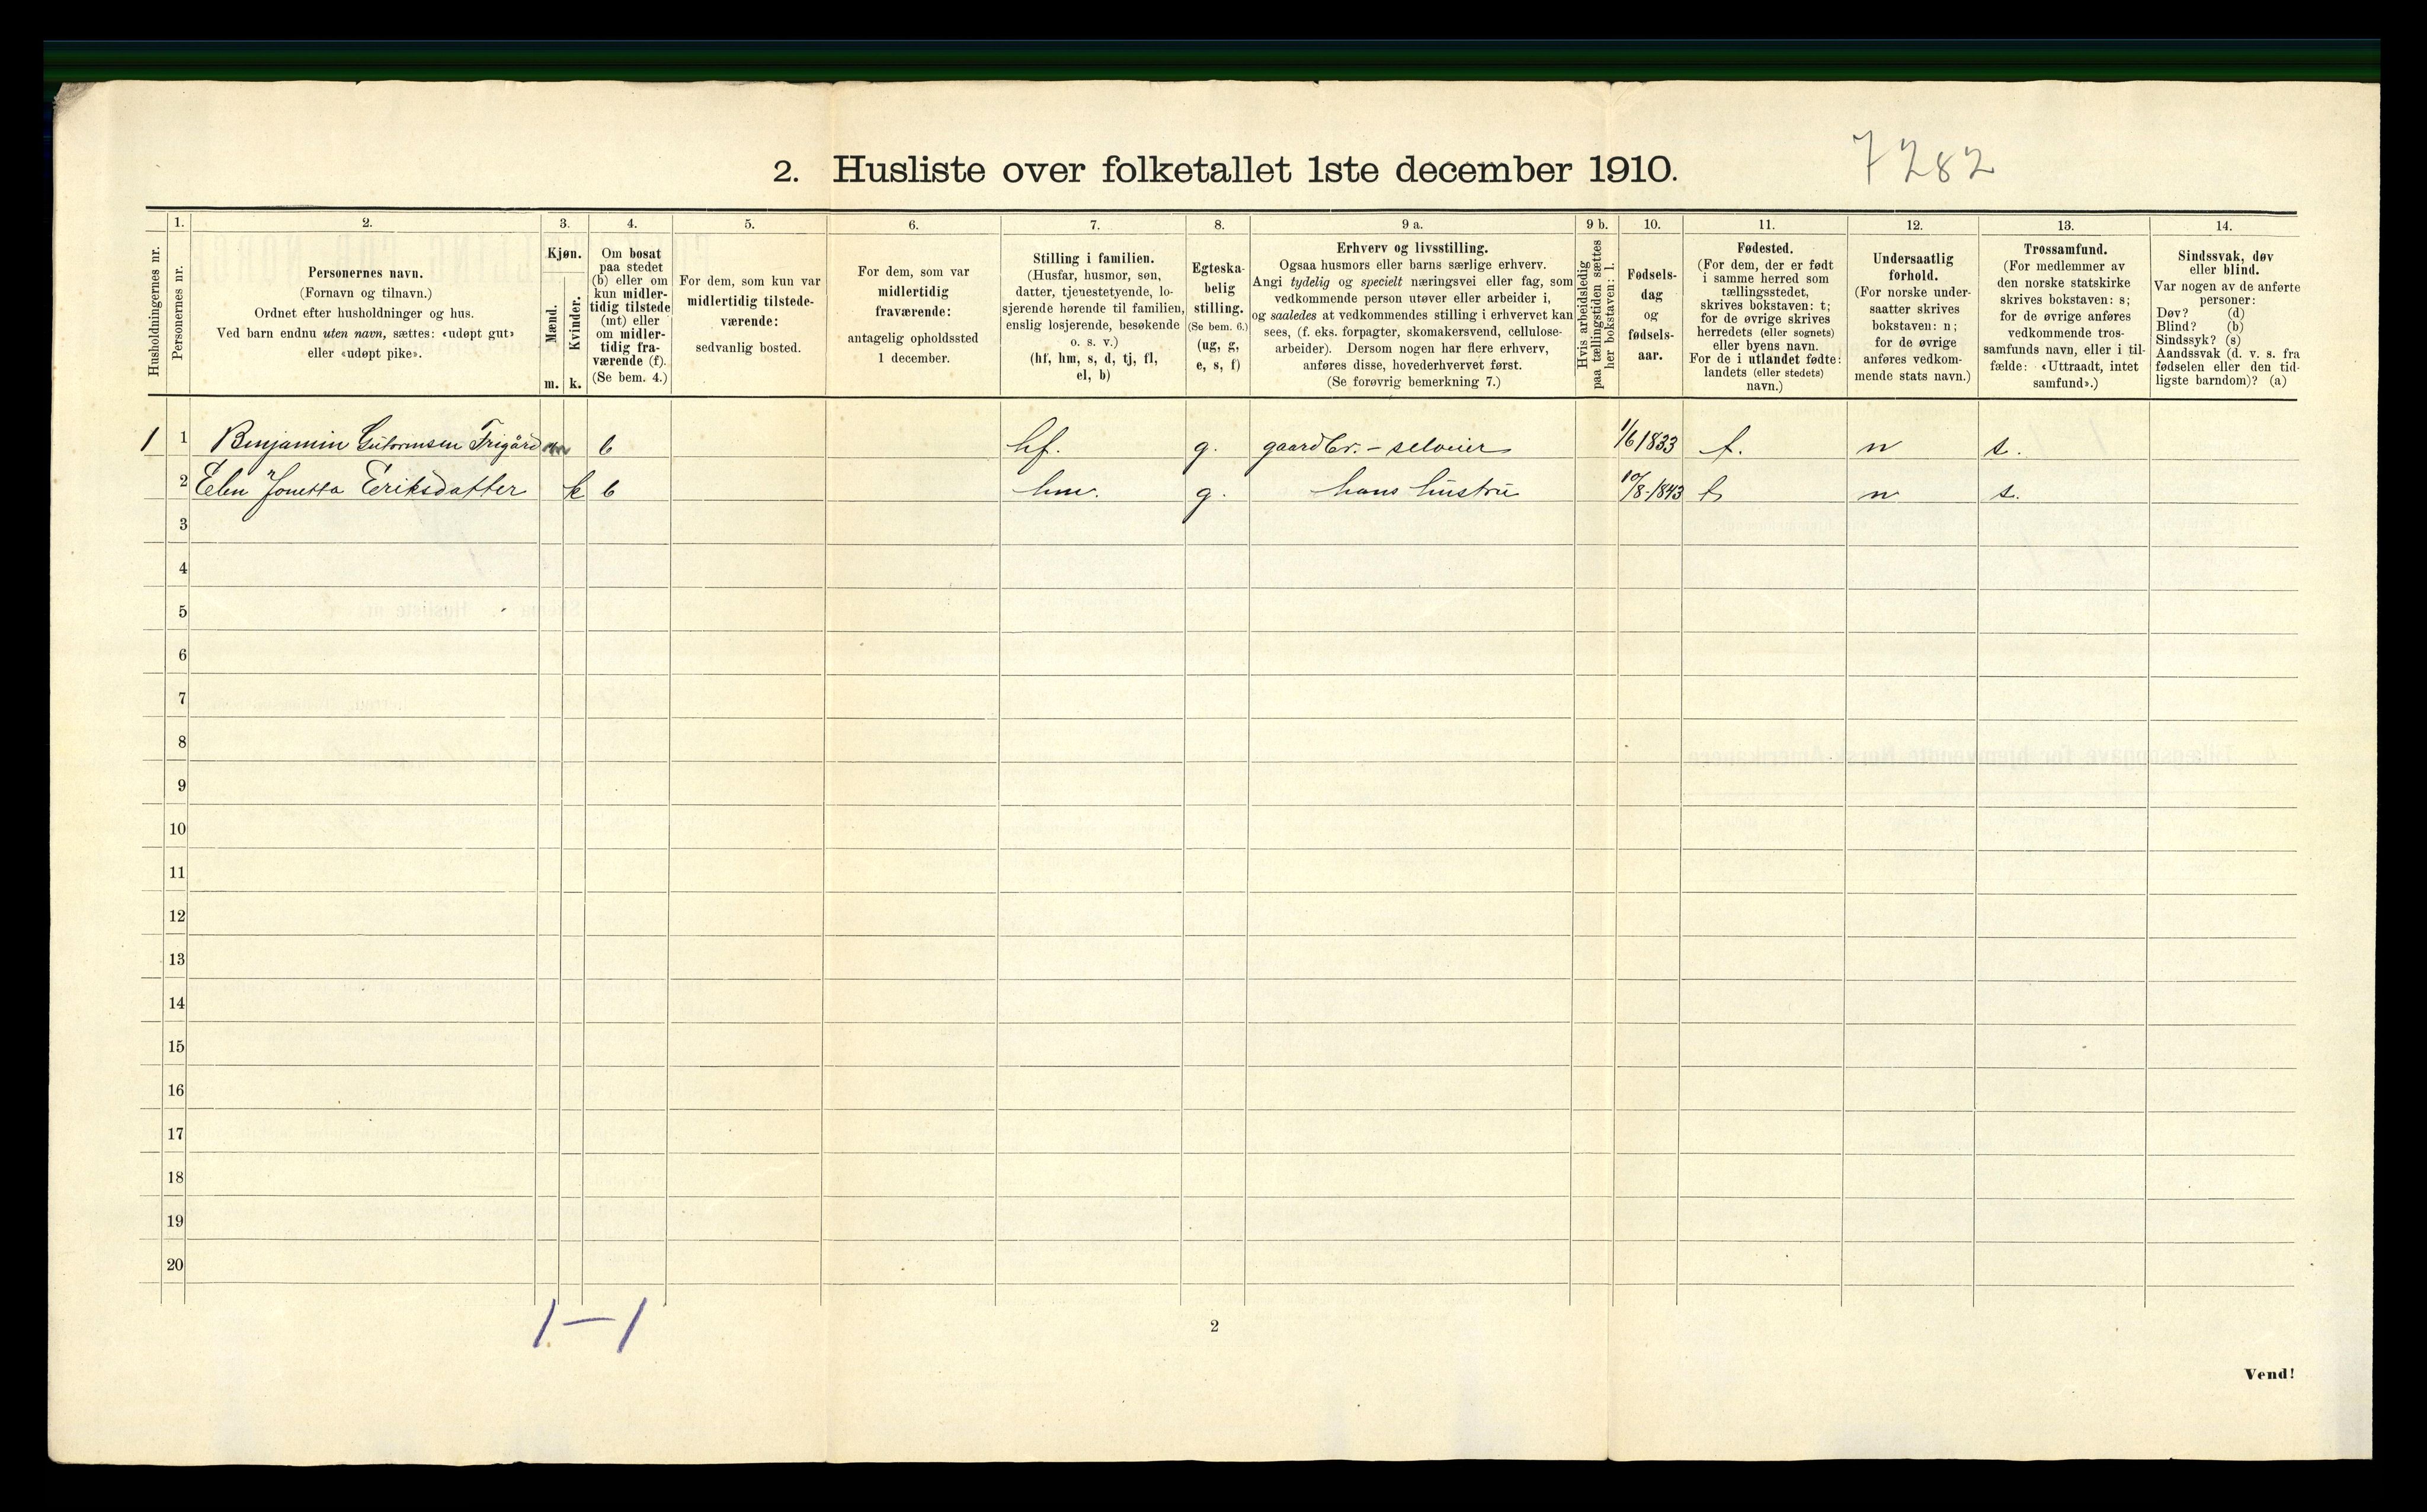 7282
2. Husliste over folketallet 1ste december 1910.
Husholdningernes nr.
1.
Personernes nr.
2.
Personernes navn.
(Fornavn og tilnavn.)
Ordnet efter husholdninger og hus.
Ved barn endnu uten navn, sættes: «udøpt gut»
eller «udøpt pike».
3.
Kjøn.
Mænd.
Kvinder.
m. k.
4.
Om bosat
paa stedet
(b) eller om
kun midler-
tidig tilstede
(mt) eller
om midler-
tidig fra-
værende (f).
(Se bem. 4.)
5.
For dem, som kun var
midlertidig tilstede-
værende:
sedvanlig bosted.
6.
For dem, som var
midlertidig
fraværende:
antagelig opholdssted
1 december.
7.
Stilling i familien.
(Husfar, husmor, søn,
datter, tjenestetyende, lo-
sjerende hørende til familien,
enslig losjerende, besøkende
o. s. v.)
(hf, hm, s, d, tj, fl,
el, b)
8.
Egteska-
belig
stilling.
(Se bem. 6.)
(ug, g,
e, s, f)
9 a.
Erhverv og livsstilling.
Ogsaa husmors eller barns særlige erhverv.
Angi tydelig og specielt næringsvei eller fag, som
vedkommende person utøver eller arbeider i,
og saaledes at vedkommendes stilling i erhvervet kan
sees, (f. eks. forpagter, skomakersvend, cellulose-
arbeider). Dersom nogen har flere erhverv,
anføres disse, hovederhvervet først.
(Se forøvrig bemerkning 7.)
9 b.
Hvis arbeidsledig
paa tællingstiden sættes
her bokstaven: l.
10.
Fødsels-
dag
og
fødsels-
aar.
11.
Fødested.
(For dem, der er født
i samme herred som
tællingsstedet,
skrives bokstaven: t;
for de øvrige skrives
herredets (eller sognets)
eller byens navn.
For de i utlandet fødte:
landets (eller stedets)
navn.)
12.
Undersaatlig
forhold.
(For norske under-
saatter skrives
bokstaven: n;
for de øvrige
anføres vedkom-
mende stats navn.)
13.
Trossamfund.
(For medlemmer av
den norske statskirke
skrives bokstaven: s;
for de øvrige anføres
vedkommende tros-
samfunds navn, eller i til-
fælde: «Uttraadt, intet
samfund».)
14.
Sindssvak, døv
eller blind.
Var nogen av de anførte
personer:
Døv? (d)
Blind? (b)
Sindssyk? (s)
Aandssvak (d. v. s. fra
fødselen eller den tid-
ligste barndom)? (a)
1 1 Benjamin Gutormsen Trigård m b hf. g. gaardbr. - selveier 1/6 1833 t. n s.
2 Elen Jonetta Eriksdatter k b hm. g. hans hustru 10/8-1843 t n s.
3
4
5
6
7
8
9
10
11
12
13
14
15
16
17
18
19
20
1 - 1
2
Vend!